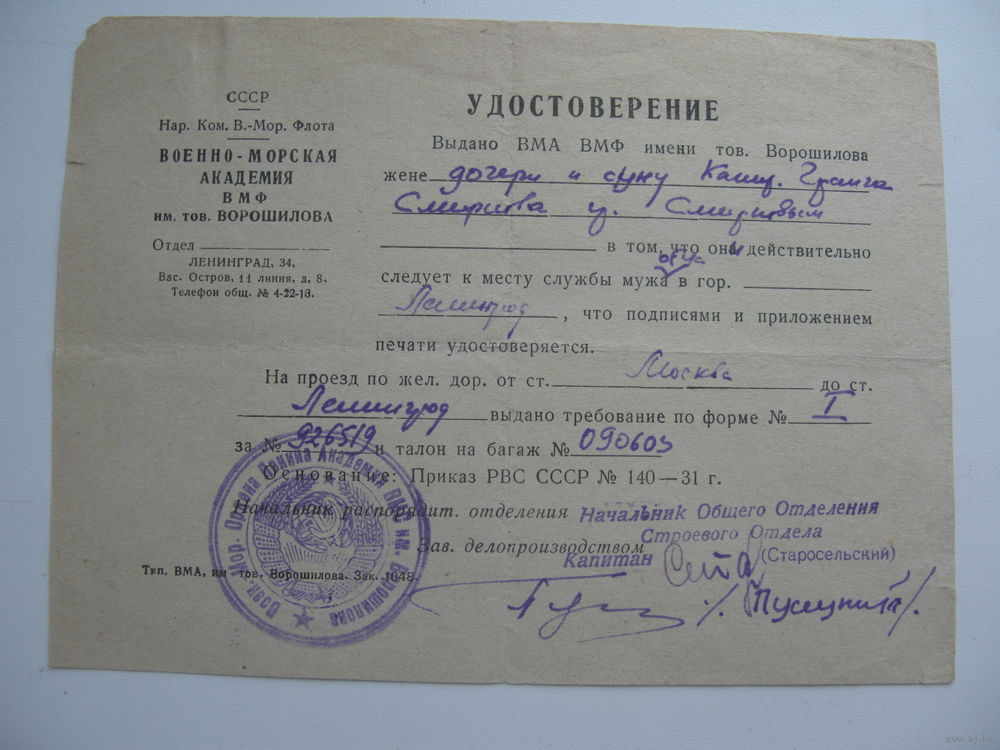 СССР
Нар. Ком. В.-Мор. Флота
ВОЕННО-МОРСКАЯ
АКАДЕМИЯ
ВМФ
им. тов. ВОРОШИЛОВА
Отдел
ЛЕНИНГРАД, 34.
Вас. Остров, 11 линия, д. 8.
Телефон общ. № 4-22-13.
УДОСТОВЕРЕНИЕ
Выдано ВМА ВМФ имени тов. Ворошилова
жене дочери и сыну
Смирнова
в том, что они действительно
отца
следует к месту службы мужа в гор.
Ленинград, что подписями и приложением
печати удостоверяется.
На проезд по жел. дор. от ст. Москва до ст.
Ленинград выдано требование по форме № I
за № 926519 и талон на багаж № 090603
Основание: Приказ РВС СССР № 140—31 г.
Начальник распорядит. отделения Начальник Общего Отделения
Строевого Отдела
Зав. делопроизводством
Капитан (Старосельский)
Тип. ВМА, им. тов. Ворошилова. Зак. 1048.
Воен. Мор. Ордена Ленина Академия ВМС им. Ворошилова
www.ay.by